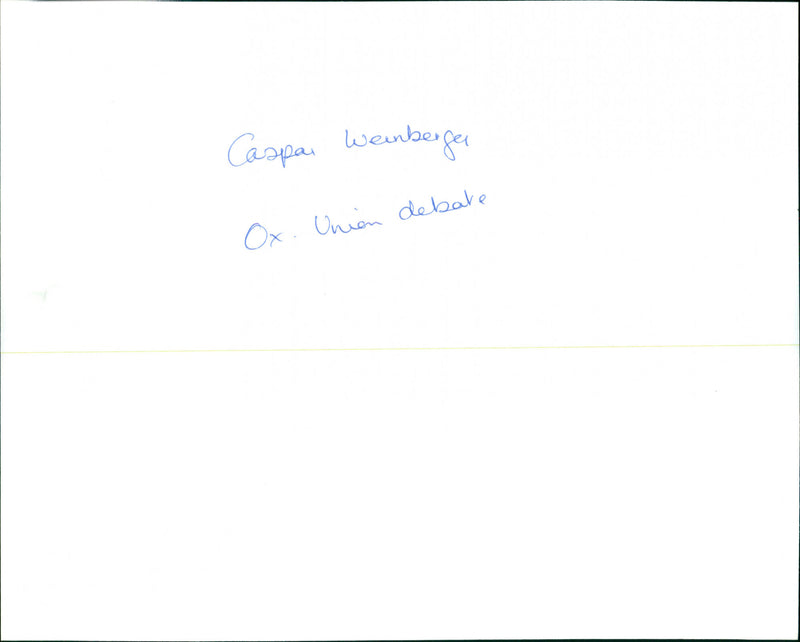 Caspar Weinberger
Ox. Union debate